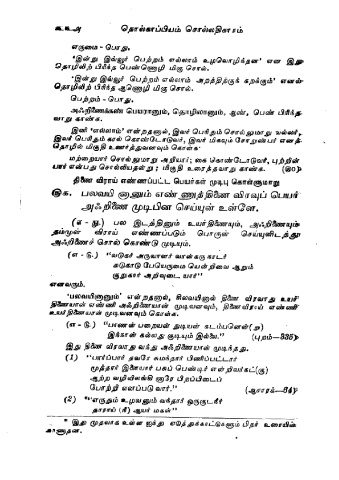 ௬௬அ தொல்காப்பியம் சொல்லதிகாரம்
எருமை - பொது.
'இன்று இவ்வூர் பெற்றம் எல்லாம் உழவொழிந்தன' என இது
தொழிலிற் பிரிந்த பெண்ணொழி மிகு சொல்.
'இன்று இவ்வூர் பெற்றம் எல்லாம் அறத்திற்குக் கறக்கும்' எனல்
தொழிலிற் பிரிந்த ஆணொழி மிகு சொல்.
பெற்றம் - பொது.
அஃறிணைக்கண் பெயரானும், தொழிலானும், ஆண், பெண் பிரிந்த
வாறு காண்க.
இனி 'எல்லாம்' என்றதனால், இவர் பெரிதும் சொல்லுமாறு வல்லர்,
இவர் பெரிதும் கால் கொண்டோடுவர், இவர் மிகவும் சோறுண்பர் எனத்
தொழில் மிகுதி உணர்த்துவனவும் கொள்க
மற்றையார் சொல்லுமாறு அறியார்; கை கொண்டோடுவர், புற்றின்
பார் என்பது சொல்லியதன்று ; மிகுதி உரைத்தவாறு காண்க. (௫0)
திணை விராய் எண்ணப்பட்ட பெயர்கள் முடிபு கொள்ளுமாறு
௫௧. பலவயி னானும் எண்ணுத்திணை விரவுப் பெயர்
அஃறிணை முடிபின செய்யுள் உள்ளே.
(எ - து.) பல இடத்தினும் உயர்திணையும், அஃறிணையும்
தம்முள் விராய் எண்ணப்படும் பொருள் செய்யுளிடத்து
அஃறிணைச் சொல் கொண்டு முடியும்.
(எ - டு.) "வடுகர் அருவாளர் வான்கரு நாடர்
சுடுகாடு பேயெருமை யென்றிவை ஆறும்
குறுகார் அறிவுடை யார்"
எனவரும்.
'பலவயினானும்' என்றதனால், சிலவயினால் திணை விரவாது உயர்
திணையான் எண்ணி அஃறிணையான் முடிவனவும், திணைவிராய் எண்ணி
உயர்திணையான் முடிவனவும் கொள்க.
(எ - டு.) "பாணன் பறையன் துடியன் கடம்பனென்(று)
இந்நான் கல்லது குடியும் இல்லை." (புறம்—335)
இது திணை விரவாது வந்து அஃறிணையான் முடிந்தது.
(1) "பார்ப்பார் தவரே சுமந்தார் பிணிப்பட்டார்
மூத்தார் இளையார் பசுப் பெண்டிர் என்றிவர்கட்(கு)
ஆற்ற வழிவிலங்கி னாரே பிறப்பிடைப்
போற்றி எனப்படு வார்." (ஆசாரக்—64)
(2) *"எருதும் உழவனும் வந்தார் ஒருகுடர்
தாராய் (நீ) ஆயர் மகள்"
* இது முதலாக உள்ள ஐந்து எடுத்துக்காட்டுகளும் பிறர் உரையின்
காணாதன.